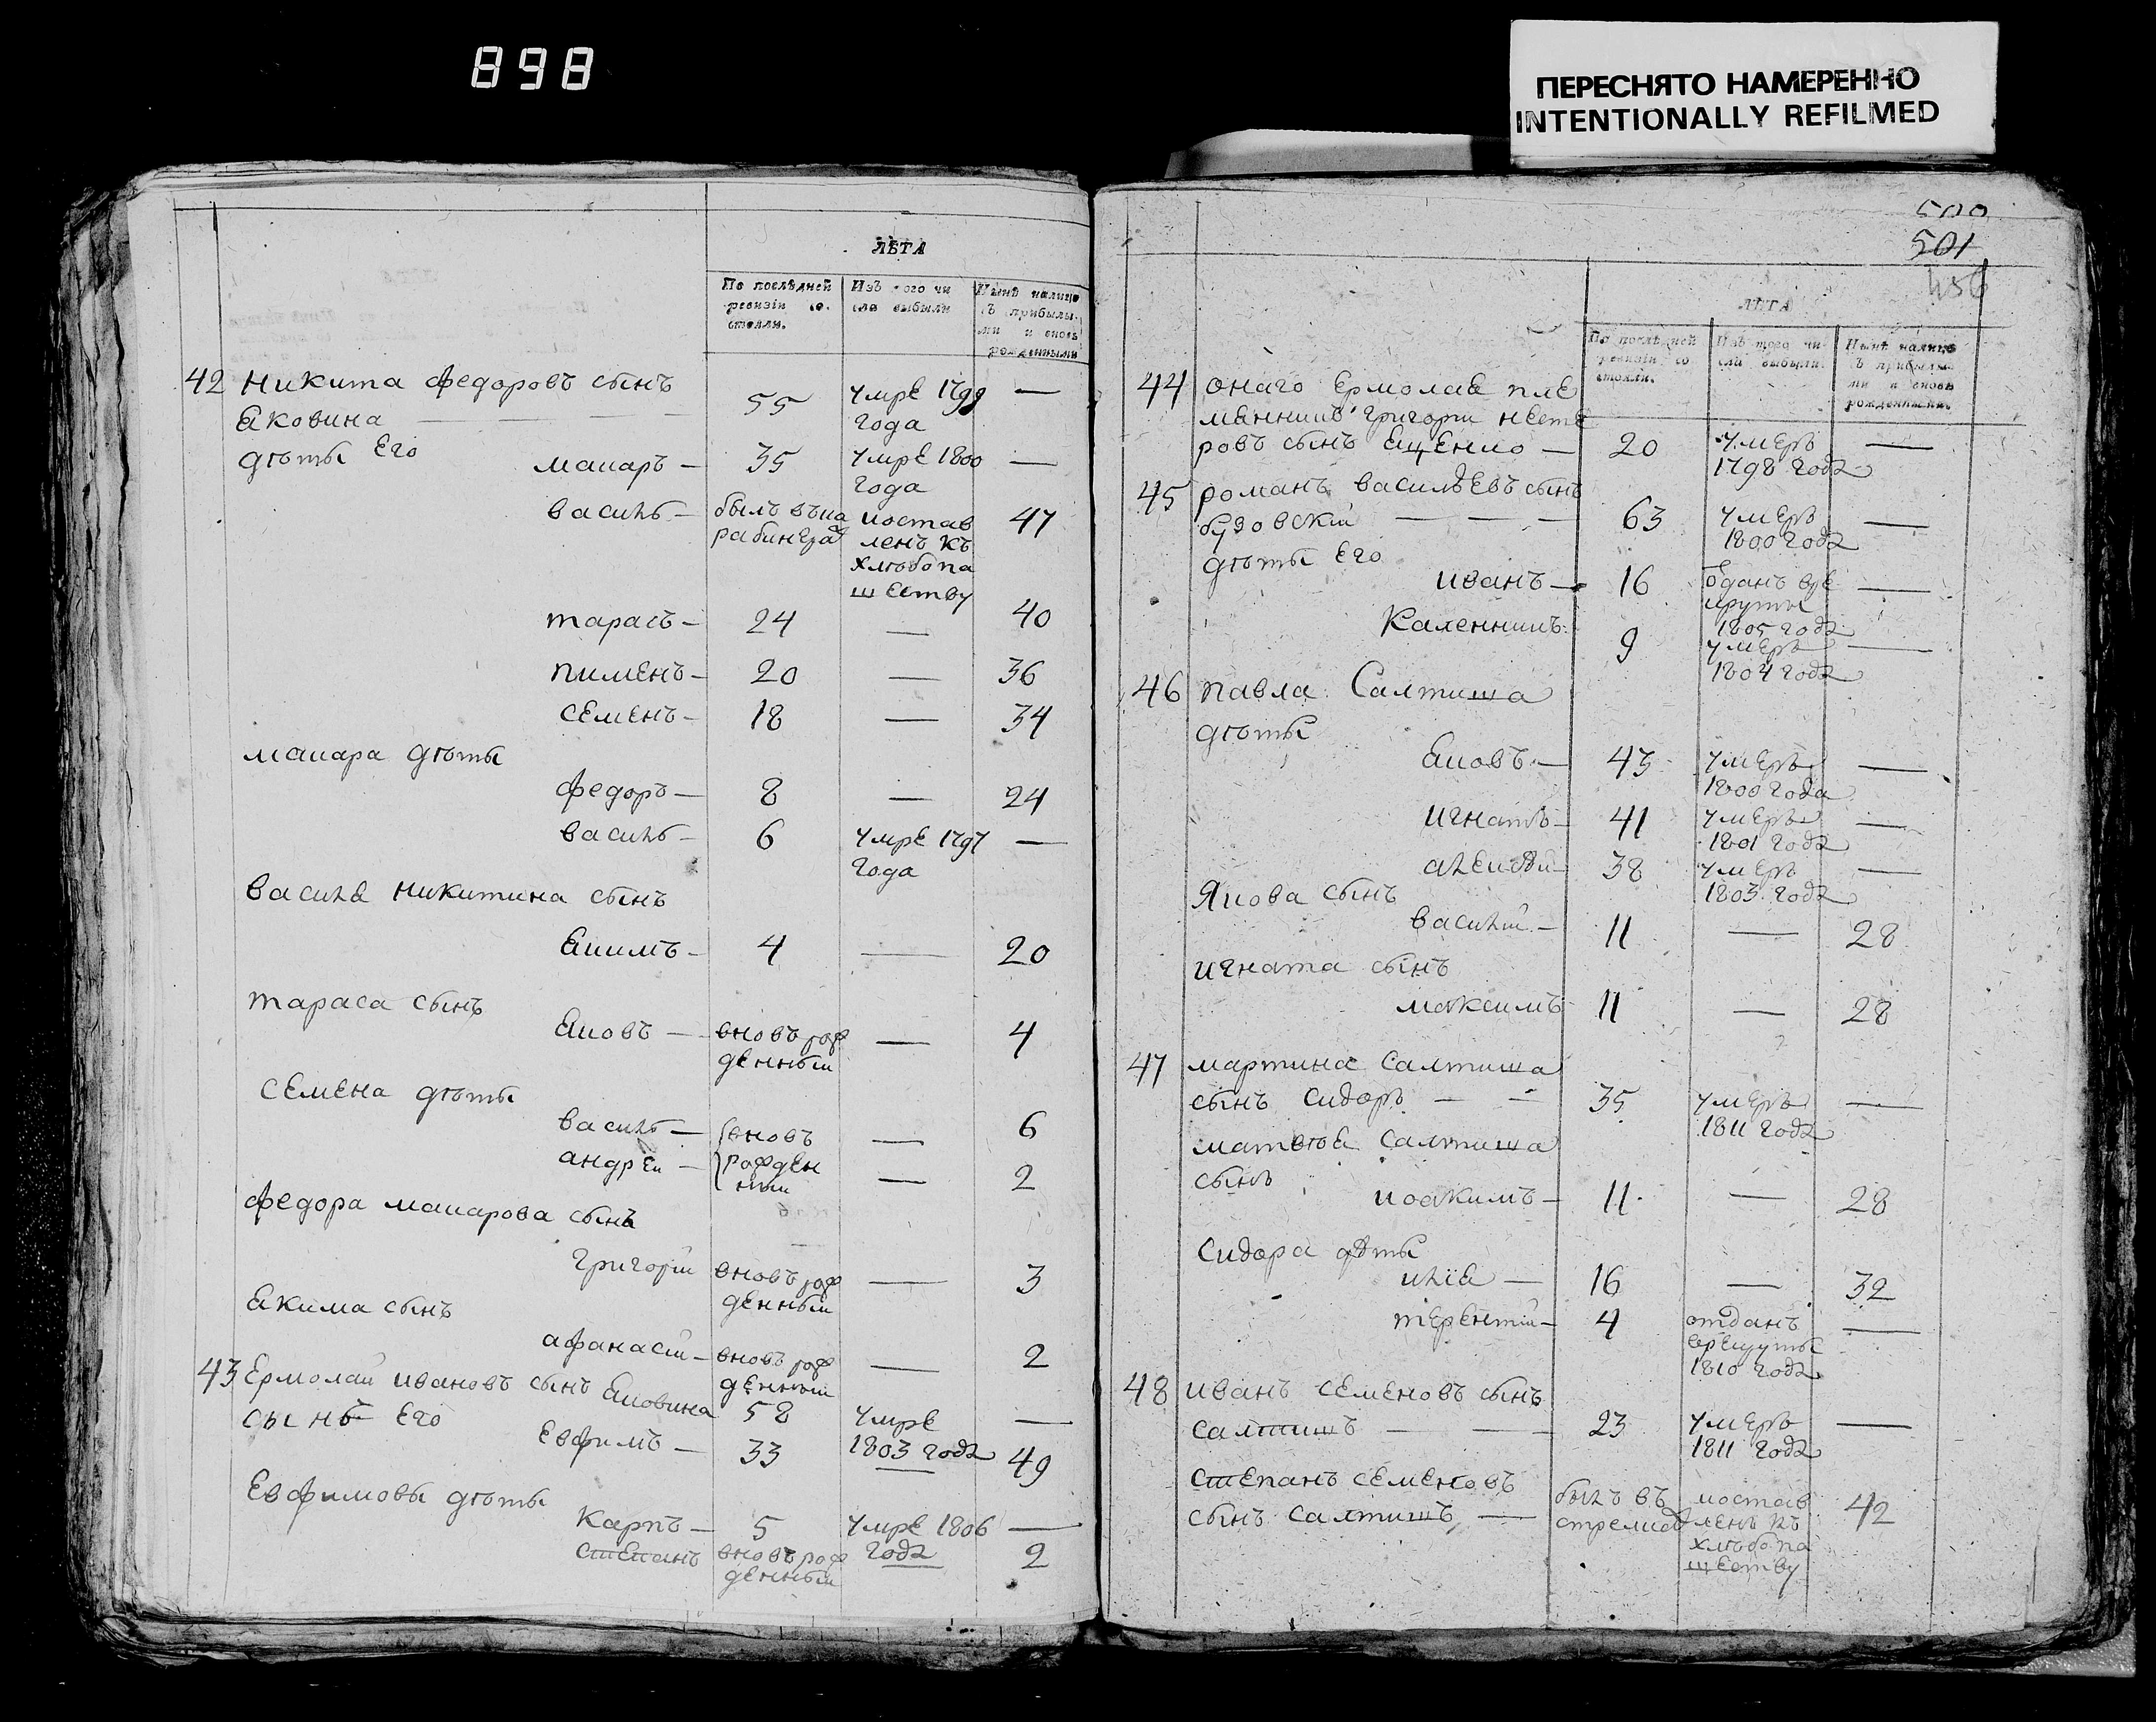 898
ПЕРЕСНЯТО НАМЕРЕННО
INTENTIONALLY REFILMED
ЛѢТА
По послѣдней ревизіи со стояли.
Изъ того чи сла выбыли
Нынѣ налицо съ прибылы ми и вновь рожденными
42 Никита Федоровъ сынъ
Яковина — 55 умре 1799 года —
дѣты Его
макаръ — 35 умре 1800 года —
василь — былъ въка рабинера постав ленъ къ хлѣбопа шеству 47
тарасъ — 24 — 40
пименъ — 20 — 36
семенъ — 18 — 34
макара дѣты
федоръ — 8 — 24
василь — 6 умре 1797 года —
василя никитина сынъ
Якимъ — 4 — 20
тараса сынъ
Яковъ — вновь рож денный — 4
семена дѣты
василь — вновь — 6
андрей — рожден ныи — 2
федора макарова сынъ
григорій вновь рож денный — 3
Якима сынъ
афанасій — вновь рож денный — 2
43 Ермолай ивановъ сынъ Яковина 58 умре 1803 года —
сынъ Его
Евфимъ — 33 — 49
Евфимовы дѣты
Карпъ — 5 умре 1806 года —
степанъ вновь рож денный 2
500
501
456
ЛѢТА
По послѣдней ревизіи со стояли.
Изъ того чи сла выбыли.
Нынѣ налицо съ прибылы ми и вновь рожденными.
44 онаго Ермолая пле
мянникъ григори несте
ровъ сынъ Ященко — 20 умеръ 1798 года —
45 романъ васильевъ сынъ
бузовскій — — — 63 умеръ 1800 года —
дѣты Его
иванъ — 16 ѿданъ вре круты 1805 года —
Каленникъ 9 умеръ 1804 года —
46 павла Салтика
дѣты
Яковъ — 43 умеръ 1800 года —
игнатъ — 41 умеръ 1801 года —
алексѣй — 38 умеръ 1803 года —
Якова сынъ
василій — 11 — 28
игната сынъ
максимъ 11 — 28
47 мартина Салтика
сынъ Сидоръ — — 35 умеръ 1811 года —
матвѣя Салтика
сынъ
иоакимъ — 11 — 28
Сидора дѣты
илія — 16 — 32
терентій — 4 отданъ врекруты 1810 года —
48 иванъ семеновъ сынъ
салтикъ — — 23 умеръ 1811 года —
степанъ семеновъ
сынъ Салтикъ — былъ въ стрелках постав ленъ къ хлѣбопа шеству 42